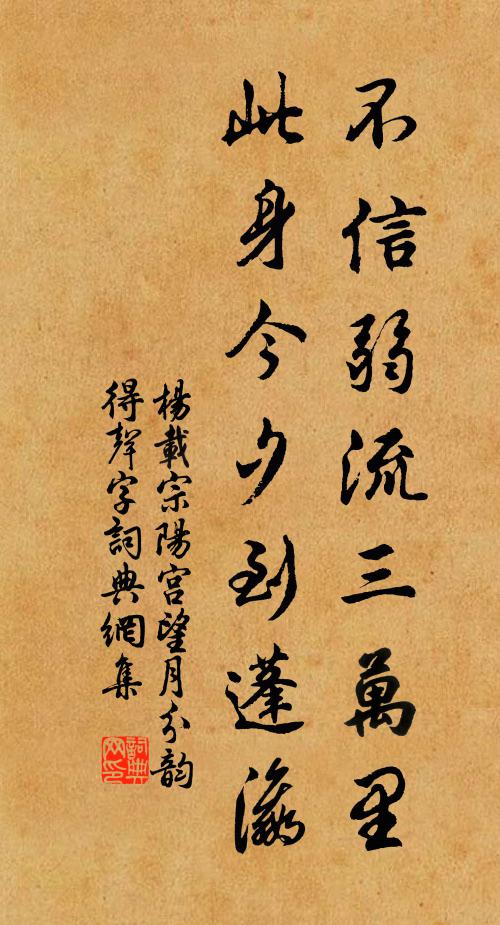 不信弱流三萬里
此身今夕到蓬瀛
楊載宗陽宮望月分韵
得聲字詞典網集
詞典网印